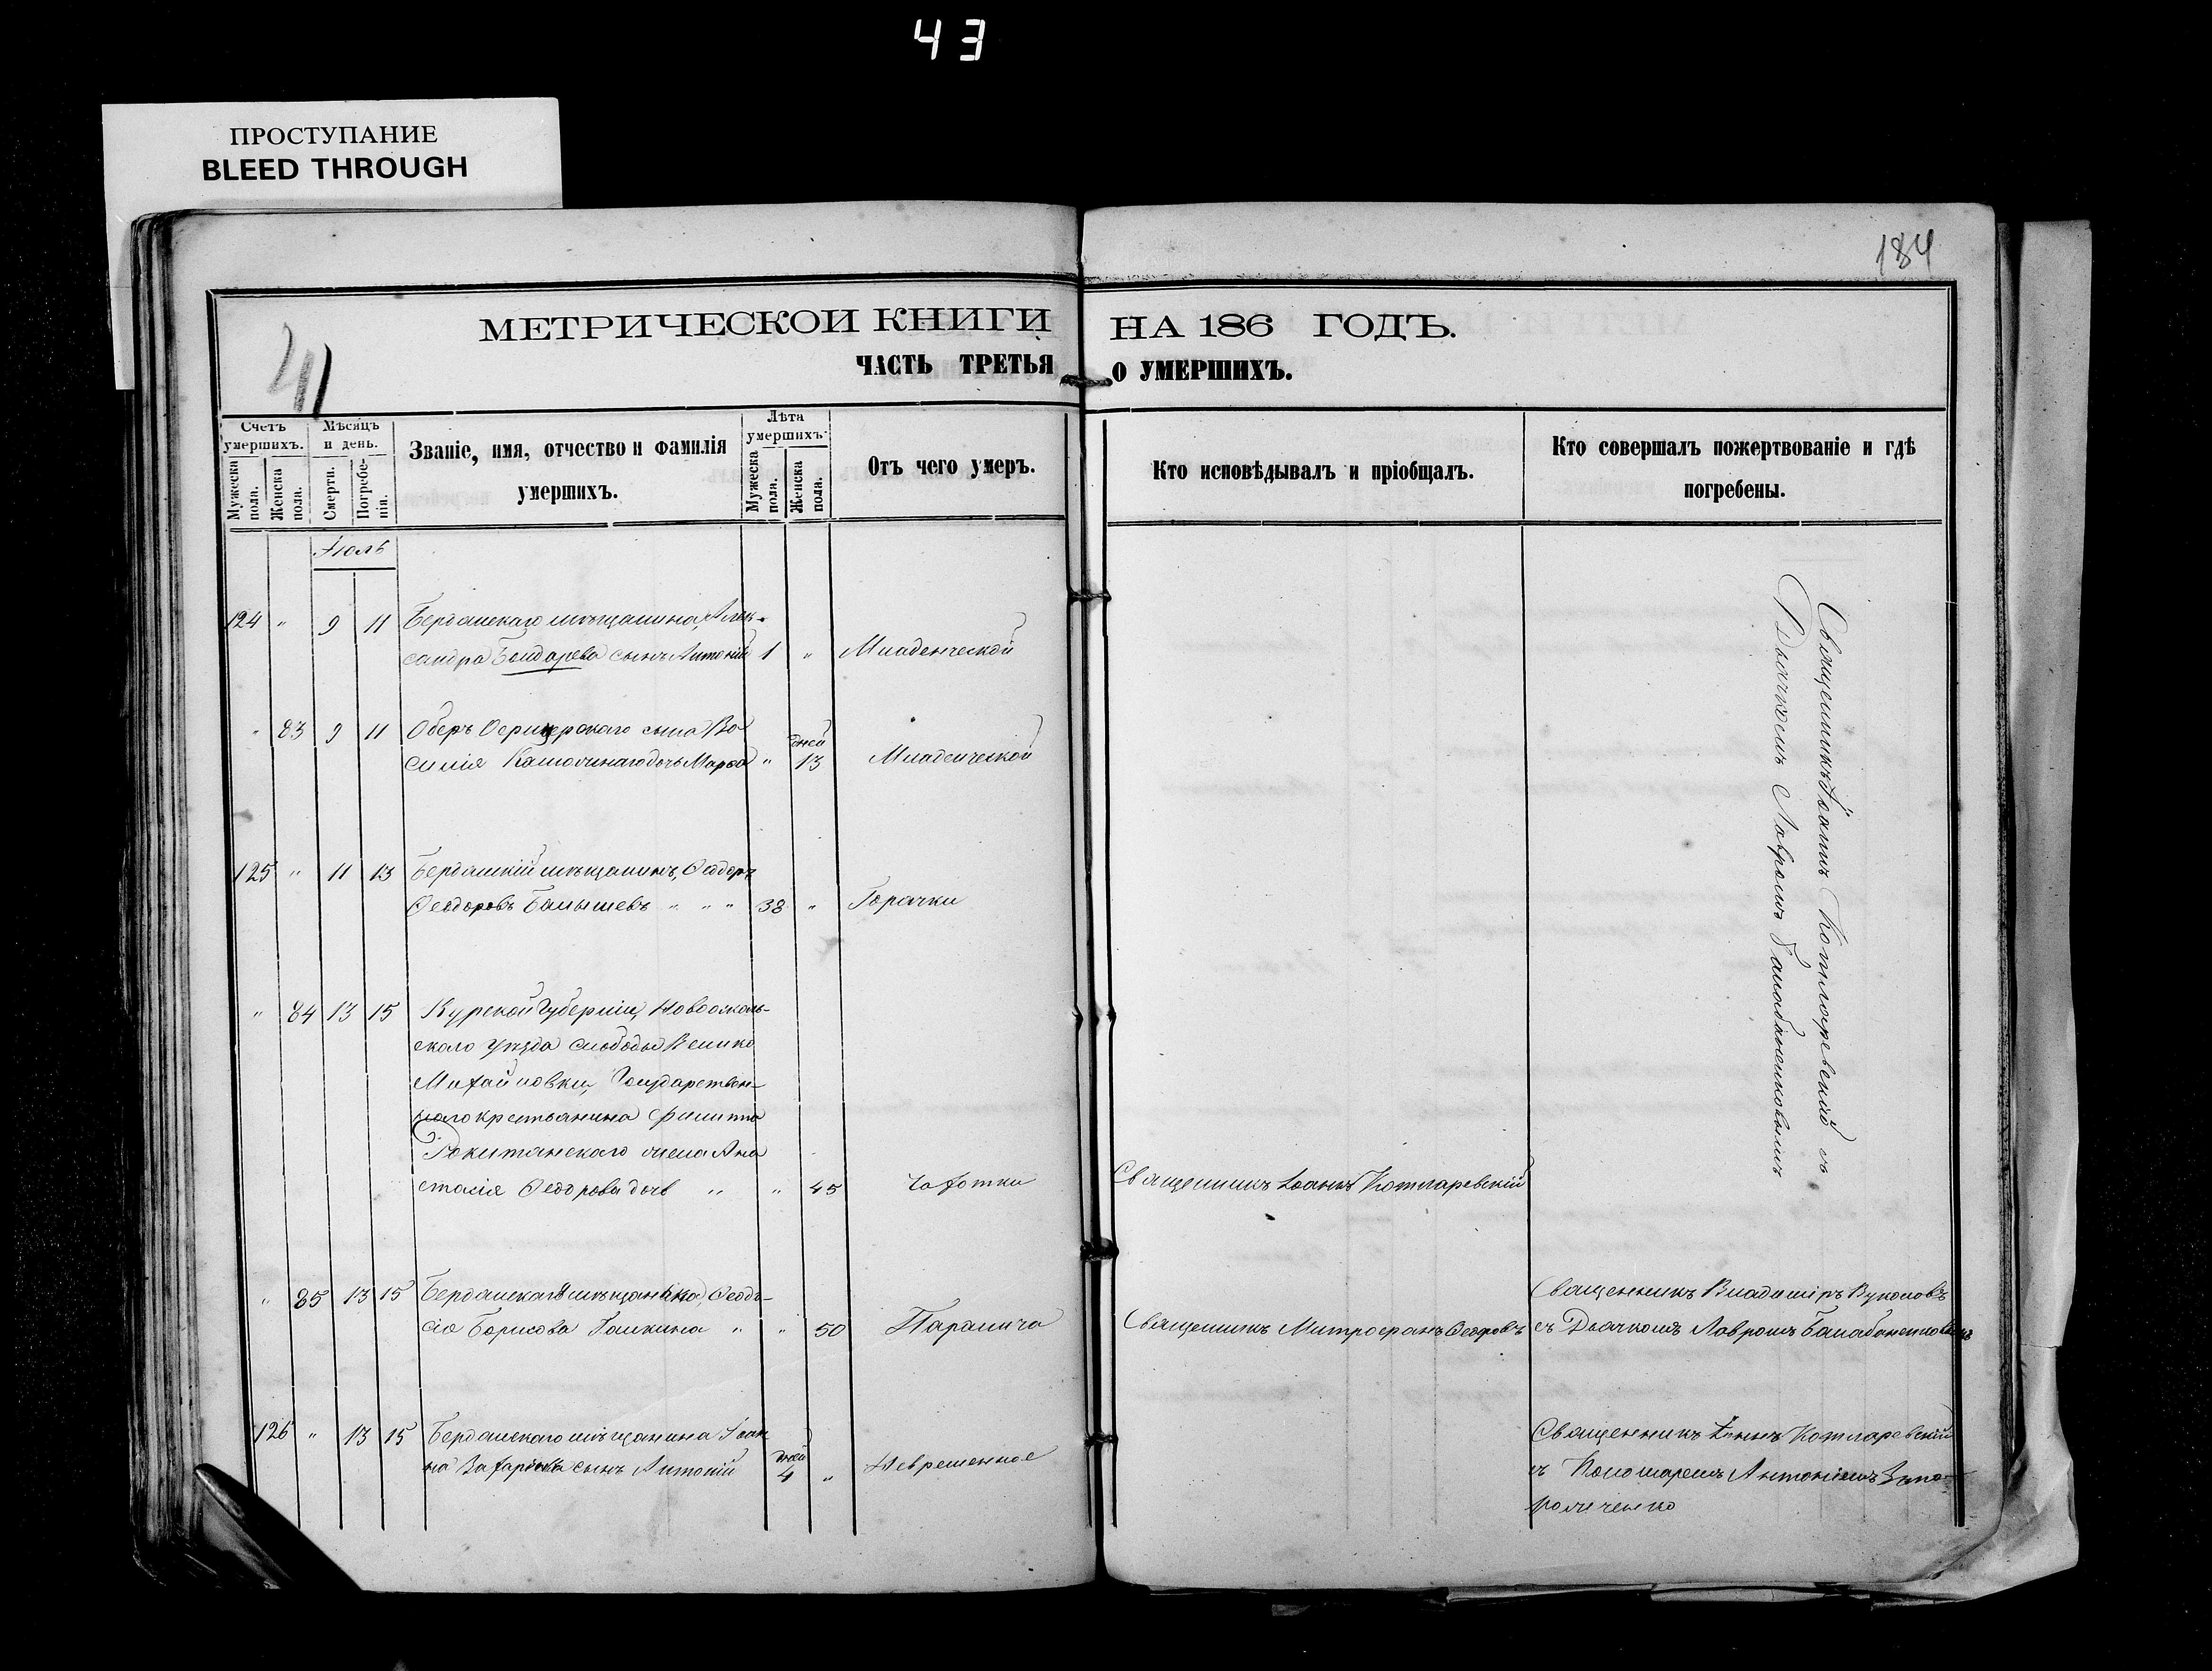 43
ПРОСТУПАНИЕ
BLEED THROUGH
184
41
МЕТРИЧЕСКОИ КНИГИ НА 186 ГОДЪ.
ЧАСТЬ ТРЕТЬЯ О УМЕРШИХЪ.
Счетъ умершихъ.
Мужеска пола.
Женска пола.
Мѣсяцъ и день.
Смерти.
Погребенія.
Званіе, имя, отчество и фамилія
умершихъ.
Лѣта умершихъ.
Мужеска пола.
Женска пола.
Отъ чего умеръ.
Кто исповѣдывалъ и пріобщалъ.
Кто совершалъ пожертвованіе и гдѣ
погребены.
Іюль
124 " 9 11 Бердянскаго мѣщанина, Алек-
сандра Бондарева сынъ Антоній 1 " Младенческой
" 83 9 11 Оберъ Офицерскаго сына Ва
силія дочь Марѳа " дней 13 Младенческой
125 " 11 13 Бердянскій мѣщанинъ, Ѳеодоръ
Ѳеодоровъ " " " 38 " Горячки
" 84 13 15 Курской Губерніи, Новоосколь-
скаго Уѣзда Слободы Велико
Михайловки, Государствен-
наго крестьянина Филиппа
Рокитянскаго жена Ана
стасія Ѳеодорова дочь " " 45 Чахотки Священникъ Іоаннъ Котляревскій
Священникъ Іоаннъ Котляревскій съ
Дьячкомъ Лавромъ
" 85 13 15 Бердянская мѣщанка, Ѳеодо-
сія Борисова Галкина " " 50 Паралича Священникъ Митрофанъ Ѳедоровъ
Священникъ Владиміръ
съ Дьячкомъ Лавромъ
126 " 13 15 Бердянскаго мѣщанина Іоан
на Захарова сынъ Антоній дней 4 " Невременное
Священникъ Іоаннъ Котляревскій
съ Пономаремъ Антоніемъ